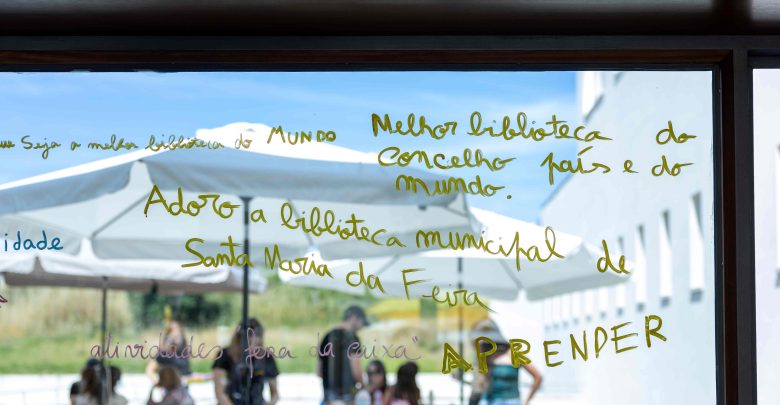 Seja a melhor biblioteca do MUNDO
Melhor biblioteca do
Concelho país e do
mundo.
Adoro a biblioteca municipal de
Santa Maria da Feira
idade
atividades "fora da caixa"
APRENDER